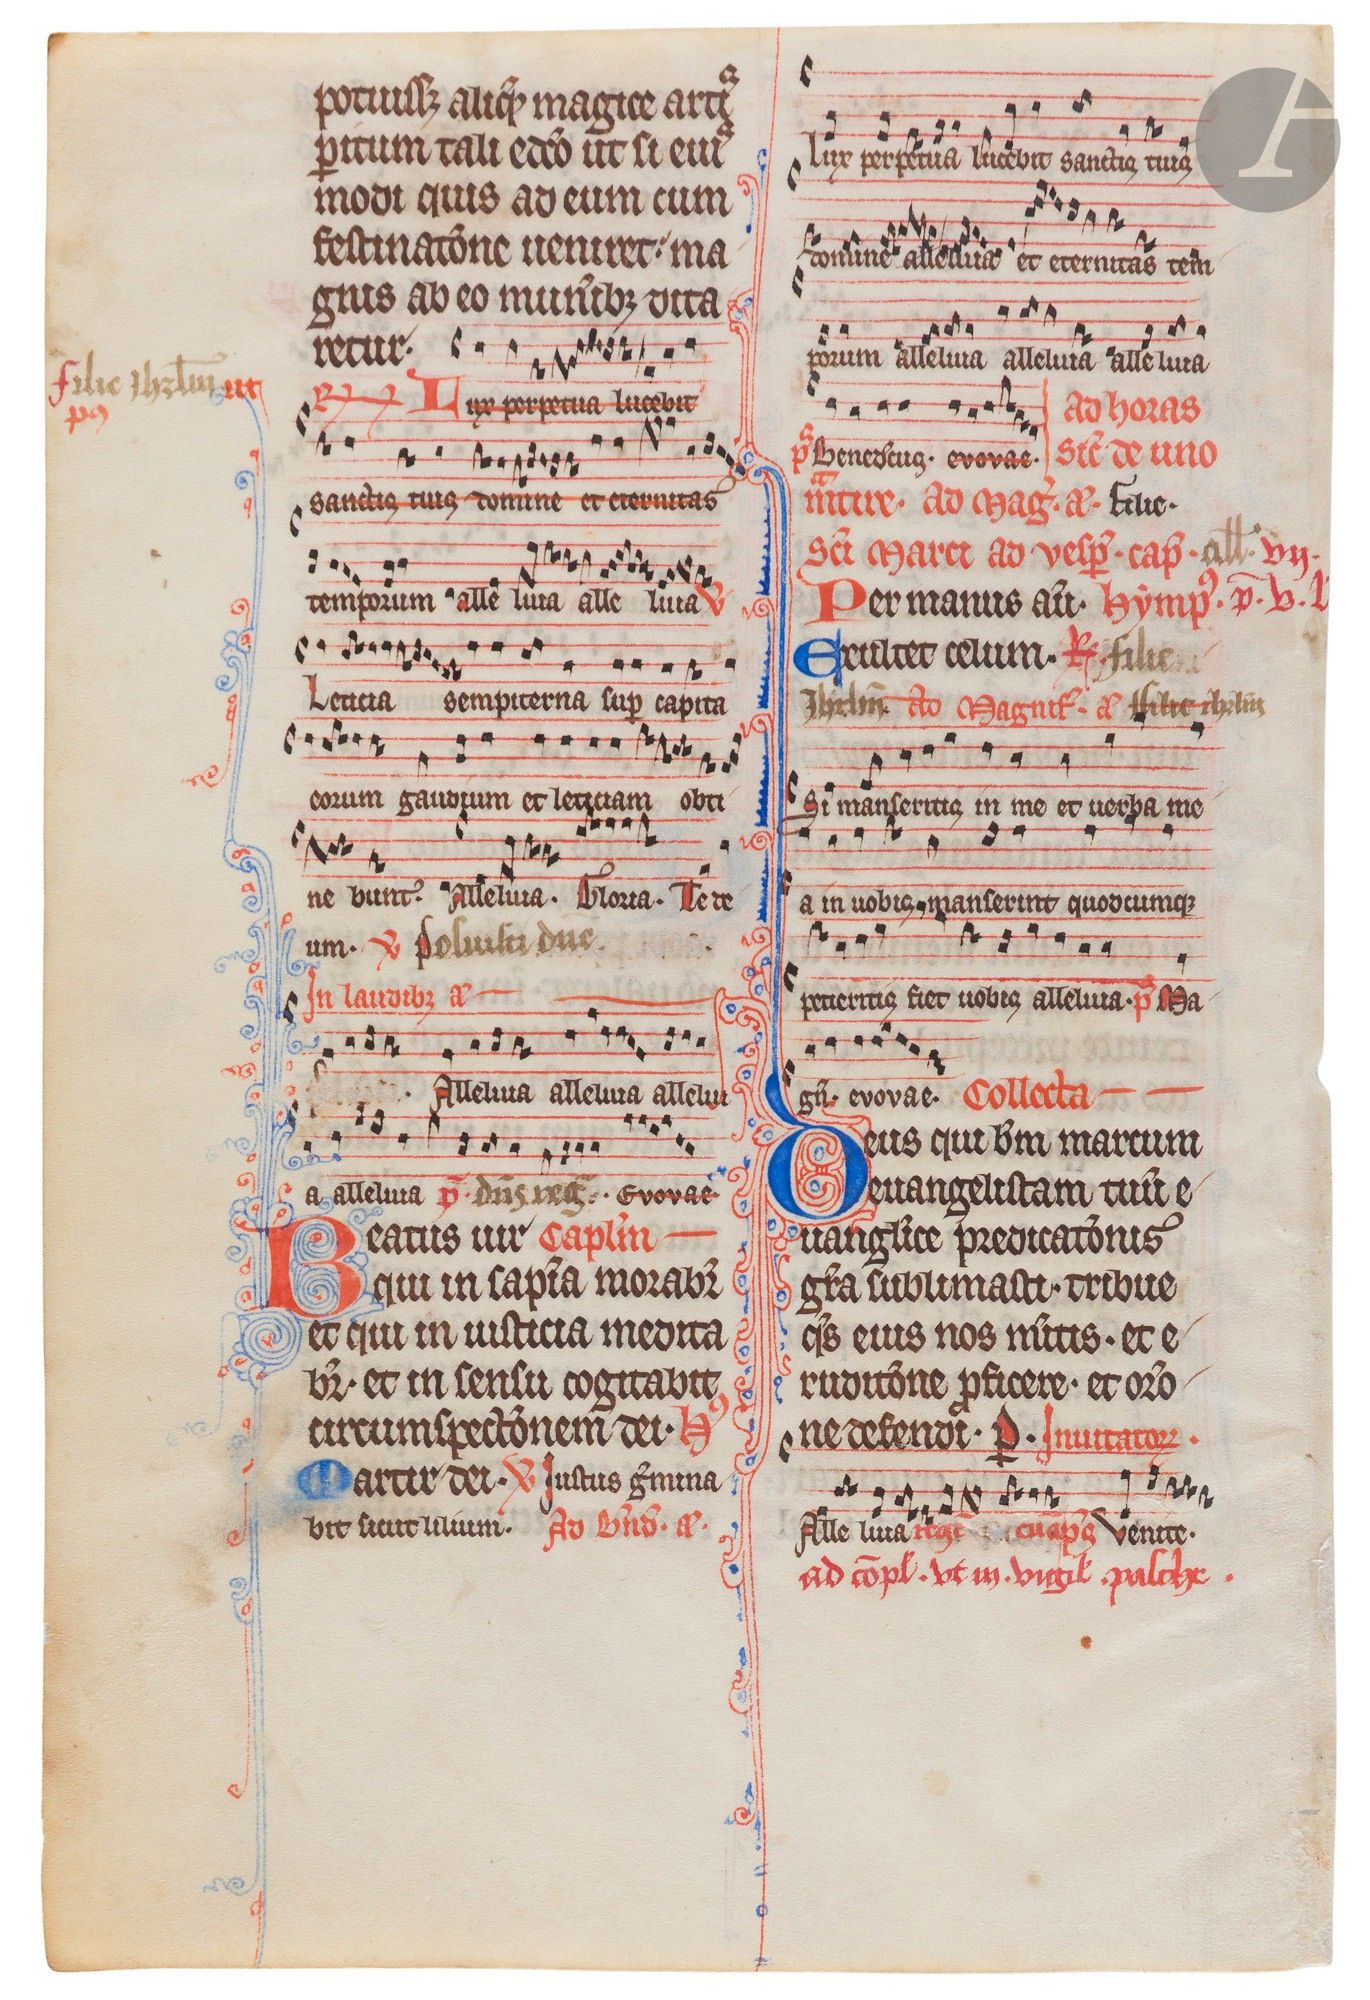 potuissꝫ aliqͥs magice artis
pitum tali edcō ut si eius
modi quis ad eum cum
festinatōne ueniret· ma
gnis ab eo munībꝫ dita
retur·
filie Ihrlm ut
Lux perpetua lucebit
sanctis tuis domine et eternitas
temporum alle luia alle luia
Leticia sempiterna sup capita
eorum gaudium et leticiam obti
ne bunt· Alleluia· Gloria· Te de
um· posuisti dne
In laudibꝫ a
Alleluia alleluia allelui
a alleluia p̄· dn̄s reg· Evovae
Beatus uir Caplm̄
qui in sapīa morabr̄
et qui in iusticia medita
br̄· et in sensu cogitabit
circumspectōnem dei· H
Martir dei· Iustus gmina
bit sicut lilium· Ad bn̄d· a·
Lux perpetua lucebit sanctis tuis
domine alleluia et eternitas tem
porum alleluia alleluia alleluia
Benedcus· evovae· ad horas
sic̄ de uno
mr̄tire· Ad Mag· a· Filie·
Sci Marci ad vesp̄· cap̄· all· vij·
Per manus aū· hymp·
Exultet celum· filie
Ihrlm̄· Ad Magnif· a filie ihrlm̄
Si manseritis in me et uerba me
a in uobis manserint quodcumqꝫ
petieritis fiet uobis alleluia· Ma
gn̄· evovae· Collecta
Deus qui bm̄ marcum
euangelistam tuū e
uanglīce predicatōnis
gr̄a sublimasti· tribue
qs̄ eius nos m̄itis· et e
ruditōne ꝓficere· et orō
ne defendi· P· Inuitatorꝫ·
Alle luia Venite·
ad cōpl· vt in vigil· pasche·